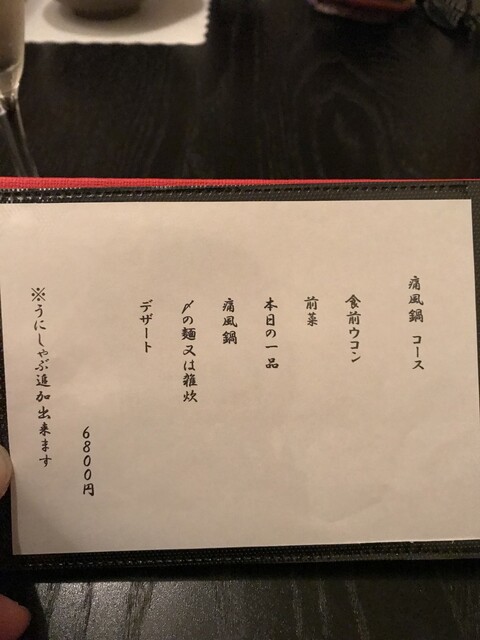 痛風鍋 コース
食前ウコン
前菜
本日の一品
痛風鍋
〆の麺又は雑炊
デザート
6800円
※うにしゃぶ追加出来ます